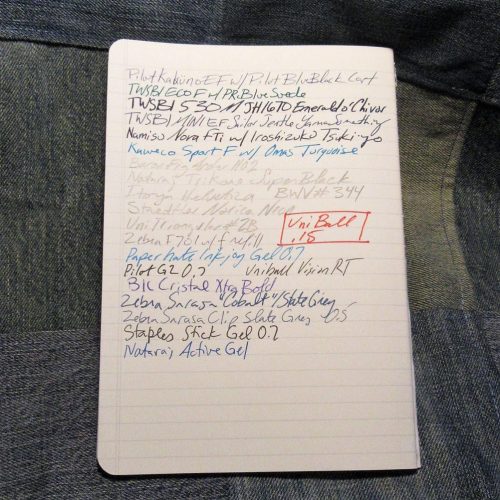 Pilot Kakuno EF w/ Pilot Blue Black Cart
TWSBI ECO F w/ PR Blue Suede
TWSBI 530 M JH1670 Emerald o' Chivor
TWSBI MINI EF Sailor Jentle Yama
Namisu Nova F Ti w/ Iroshizuku Tsuki-yo
Kaweco Sport F w/ Omas Turquoise
#02
Nataraj Trikone Super Black
Itoya Helvetica BWV# 344
Staedtler Norica
Uni Triangular # 2B
Zebra F701 w/ f refill
UniBall
.15
Papermate Inkjoy Gel 0.7
Pilot G2 0.7 Uniball Vision RT
BIC Cristal Xtra Bold
Zebra Sarasa "Cobalt"/Slate Grey
Zebra Sarasa Clip Slate Grey 0.5
Staples Stick Gel 0.7
Nataraj Active Gel